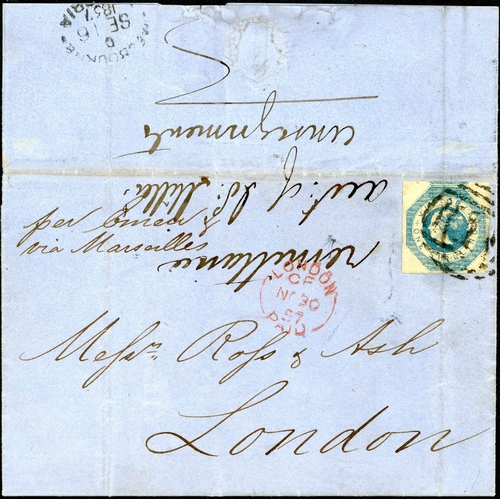 MELBOURNE
16
SE
1857
VICTORIA
consignment
act: of
remittance
per Emeu
via Marseilles
LONDON
CF
NO 30
57
PAID
Messrs Ross & Ash
London